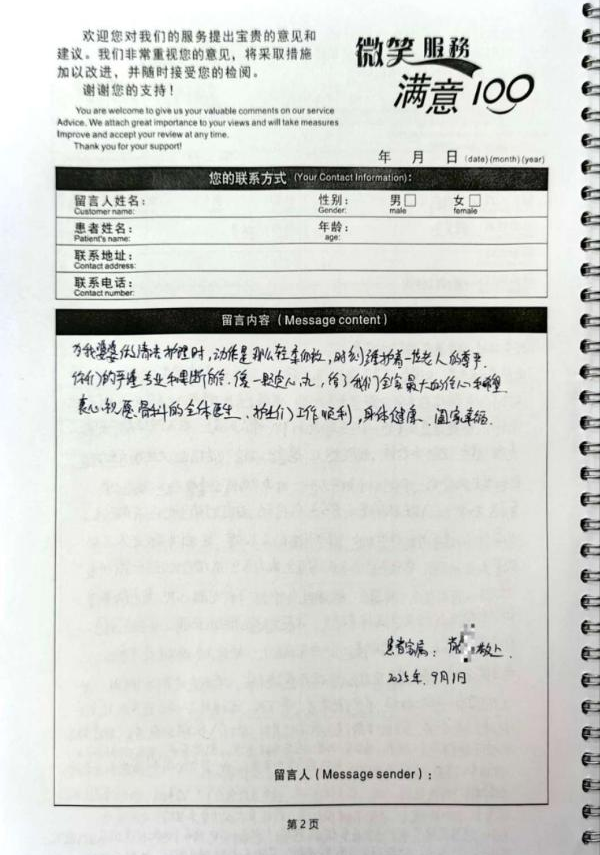 欢迎您对我们的服务提出宝贵的意见和
建议。我们非常重视您的意见，将采取措施
加以改进，并随时接受您的检阅。
谢谢您的支持！
You are welcome to give us your valuable comments on our service
Advice. We attach great importance to your views and will take measures
Improve and accept your review at any time.
Thank you for your support!
微笑服務
满意100
年 月 日 (date)(month)(year)
您的联系方式 (Your Contact Information)：
留言人姓名： 性别： 男□ 女□
Customer name: Gender: male female
患者姓名： 年龄：
Patient's name: age:
联系地址：
Contact address:
联系电话：
Contact number:
留言内容（Message content）
为我婆婆做清洁护理时，动作是那么轻柔细致，时刻维护着一位老人的尊严。
你们的严谨专业和果断所答，像一颗定心丸，给了我们全家最大的信心和希望
衷心祝愿骨科的全体医生、护士们工作顺利，身体健康、阖家幸福
患者家属： 敬上
2025年9月1日
留言人（Message sender）：
第2页